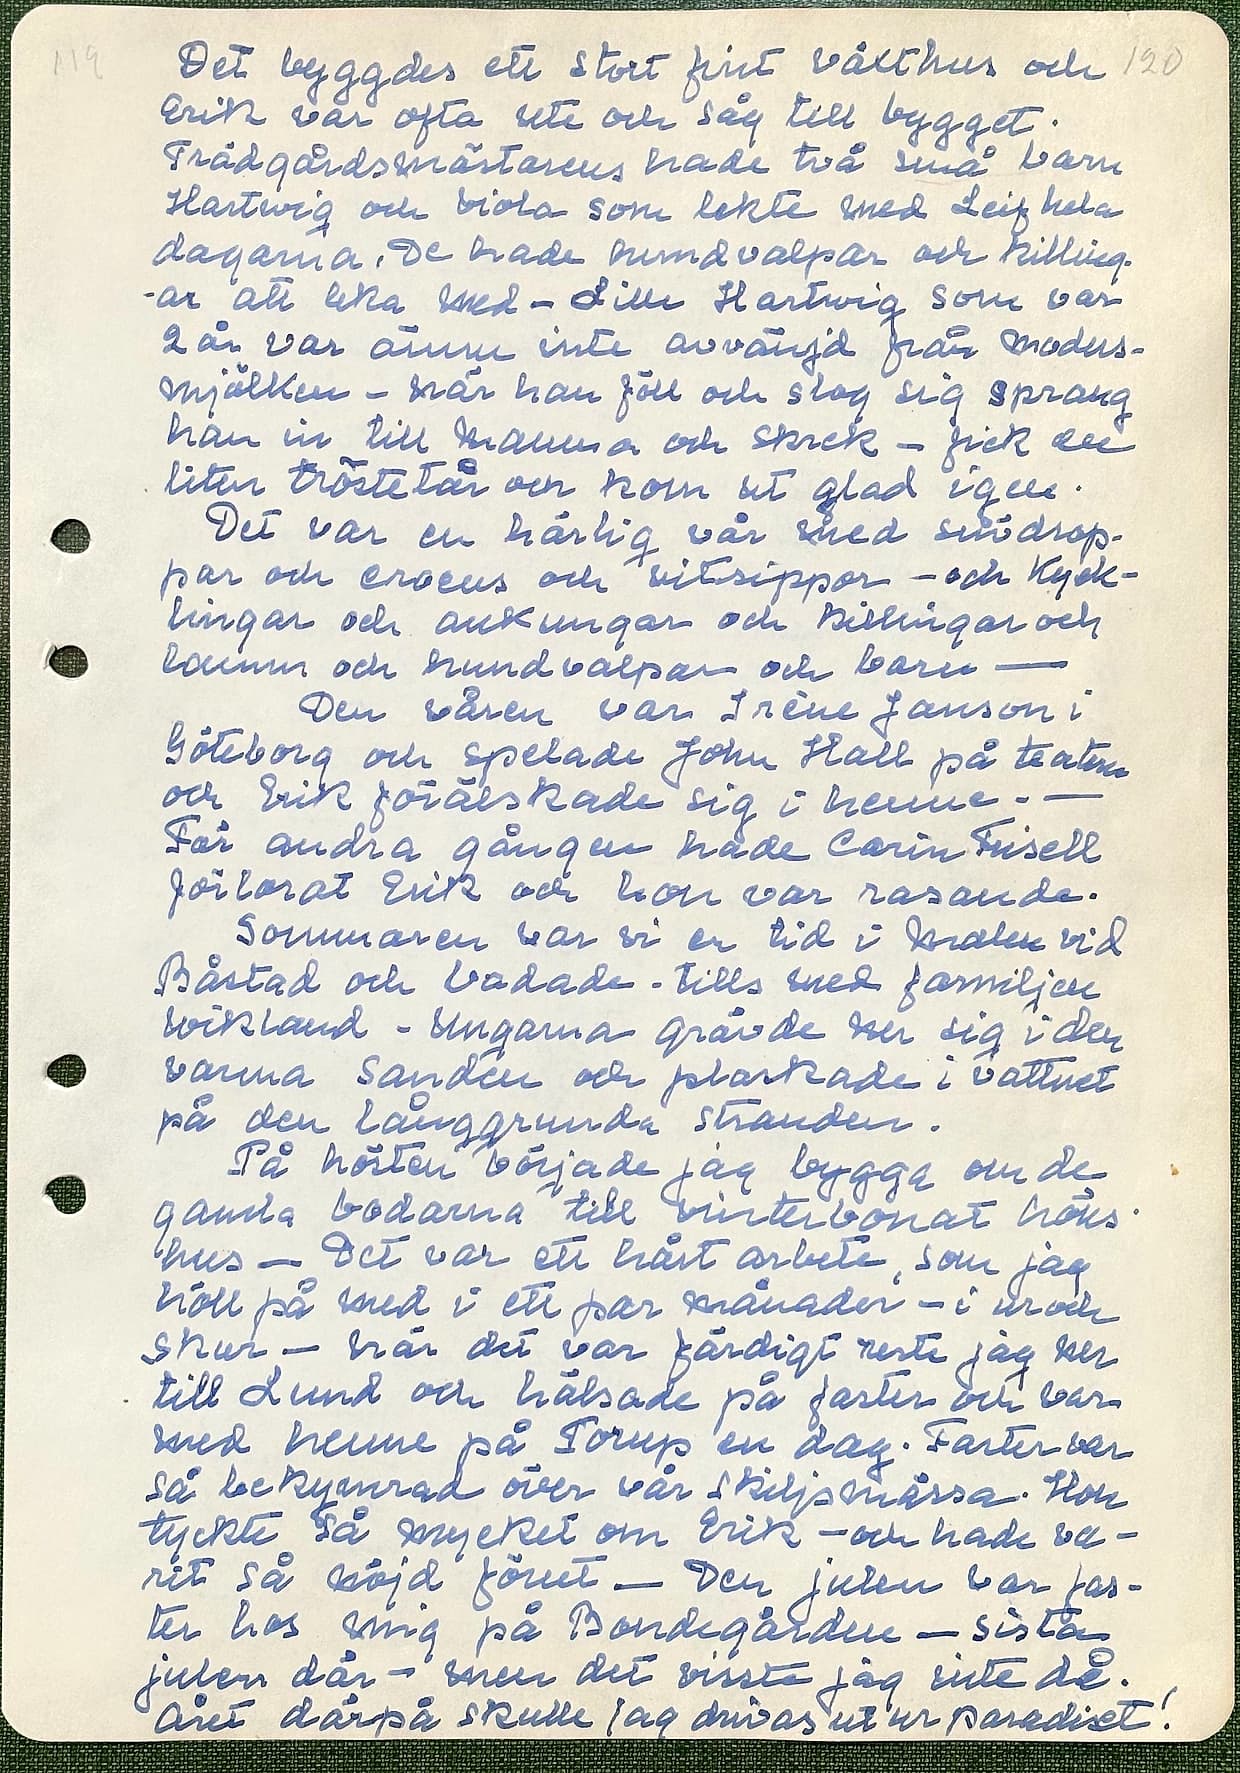 119
120
Det byggdes ett stort fint växthus och
Erik var ofta ute och såg till bygget.
Trädgårdsmästarens hade två små barn
Hartwig och Viola som lekte med Leif hela
dagarna. De hade hundvalpar och killing-
-ar att leka med – Lille Hartwig som var
2 år var ännu inte avvänjd från moders-
mjölken – när han föll och slog sig sprang
han in till mamma och skrek – fick en
liten tröstetår och kom ut glad igen.
Det var en härlig vår med snödrop-
par och crocus och vitsippor – och Kyck-
lingar och ankungar och killingar och
lamm och hundvalpar och barn —
Den våren var Irène Janson i
Göteborg och spelade John Hall på teatern
och Erik förälskade sig i henne. —
För andra gången hade Carin Frisell
förlorat Erik och hon var rasande.
Sommaren var vi en tid i Malen vid
Båstad och badade – tills med familjen
Wikland – Ungarna grävde ner sig i den
varma sanden och plaskade i vattnet
på den långgrunda stranden.
På hösten började jag bygga om de
gamla bodarna till vinterbonat höns-
hus — Det var ett hårt arbete, som jag
höll på med i ett par månader – i ur och
skur – när det var färdigt reste jag ner
till Lund och hälsade på faster och var
med henne på Torup en dag. Faster var
så bekymrad över vår skiljsmässa. Hon
tyckte så mycket om Erik – och hade va-
rit så nöjd förut — Den julen var fas-
ter hos mig på Bondegården — sista
julen där – men det visste jag inte då.
Året därpå skulle jag drivas ut ur paradiset!